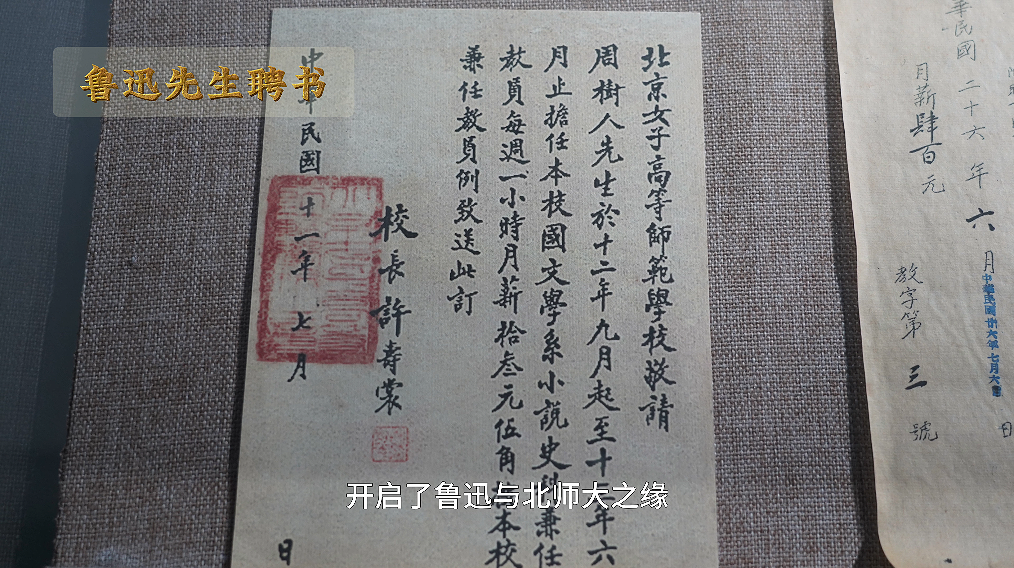 鲁迅先生聘书
北京女子高等師範學校敬請
周樹人先生於十二年九月起至十三年六
月止擔任本校國文學系小說史科兼任
教員每週一小時月薪拾叁元伍角按本校
兼任教員例致送此訂
校長許壽裳
中華民國十一年七月
日
華民國二十六年六月
日
月薪肆百元
教字第三號
中華民國廿六年七月六
开启了鲁迅与北师大之缘